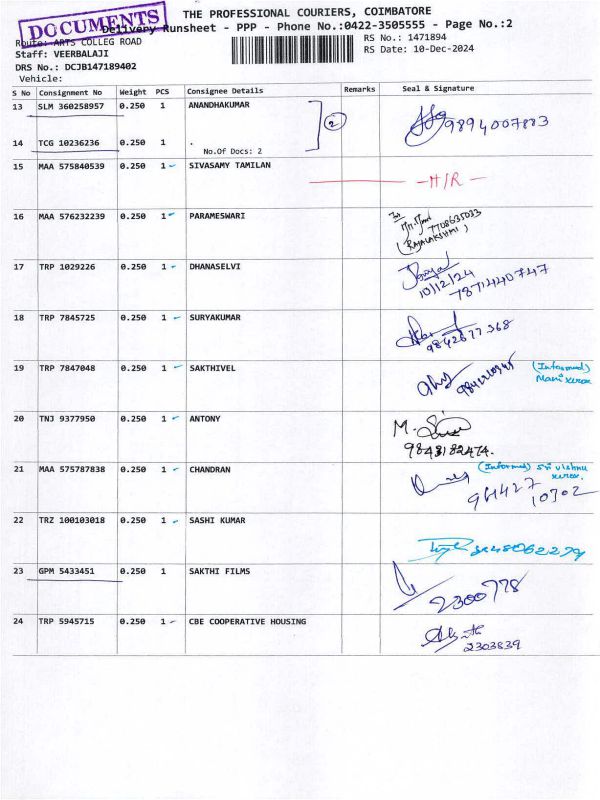 DOCUMENTS
THE PROFESSIONAL COURIERS, COIMBATORE
Delivery Runsheet - PPP - Phone No.:0422-3505555 - Page No.:2
Route: ARTS COLLEG ROAD
RS No.: 1471894
Staff: VEERBALAJI
RS Date: 10-Dec-2024
DRS No.: DCJB147189402
Vehicle:
S No Consignment No Weight PCS Consignee Details Remarks Seal & Signature
13 SLM 360258957 0.250 1 ANANDHAKUMAR
2 9894007883
14 TCG 10236236 0.250 1 .
No.Of Docs: 2
15 MAA 575840539 0.250 1 SIVASAMY TAMILAN
H/R
16 MAA 576232239 0.250 1 PARAMESWARI
7708635033
(RAJALAKSHMI)
17 TRP 1029226 0.250 1 DHANASELVI
10/12/24
7871440747
18 TRP 7845725 0.250 1 SURYAKUMAR
9842677368
19 TRP 7847048 0.250 1 SAKTHIVEL (Informed)
Mani xerox
20 TNJ 9377950 0.250 1 ANTONY
M.
9843182474.
21 MAA 575787838 0.250 1 CHANDRAN (Informed) Sri Vishnu
xerox.
961427
10702
22 TRZ 100103018 0.250 1 SASHI KUMAR
23 GPM 5433451 0.250 1 SAKTHI FILMS
2300778
24 TRP 5945715 0.250 1 CBE COOPERATIVE HOUSING
2303839